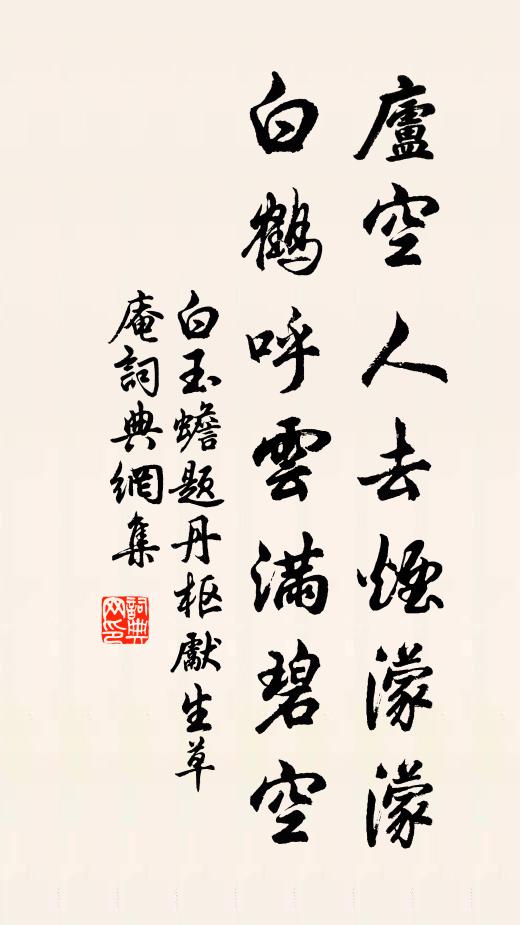 廬空人去煙濛濛
白鶴呼雲滿碧空
白玉蟾题丹枢獻生草
庵詞典網集
詞典网印